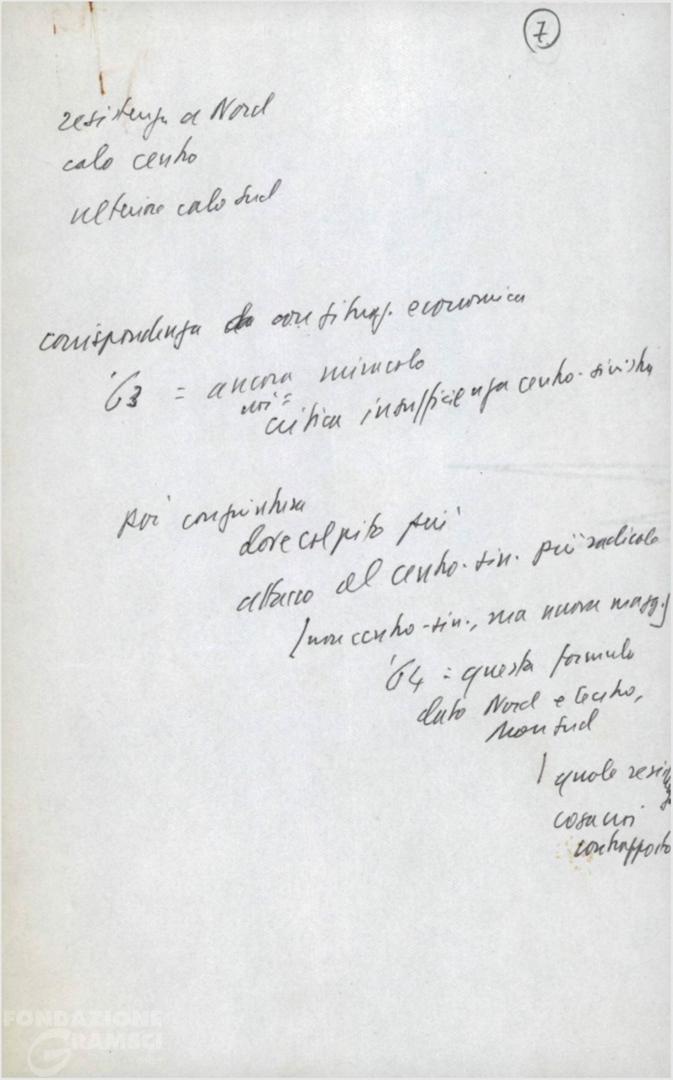 7
resistenza a Nord
calo centro
ulteriore calo Sud
corrispondenza con situaz. economica
'63 = ancora miracolo
noi =
critica insufficienza centro-sinistra
poi congiuntura
dove colpito più
attacco al centro-sin. più radicale
(non centro-sin., ma nuova magg.)
'64 = questa formula
dato Nord e Centro,
non Sud
quale
cosa noi
contrapposto
FONDAZIONE
GRAMSCI